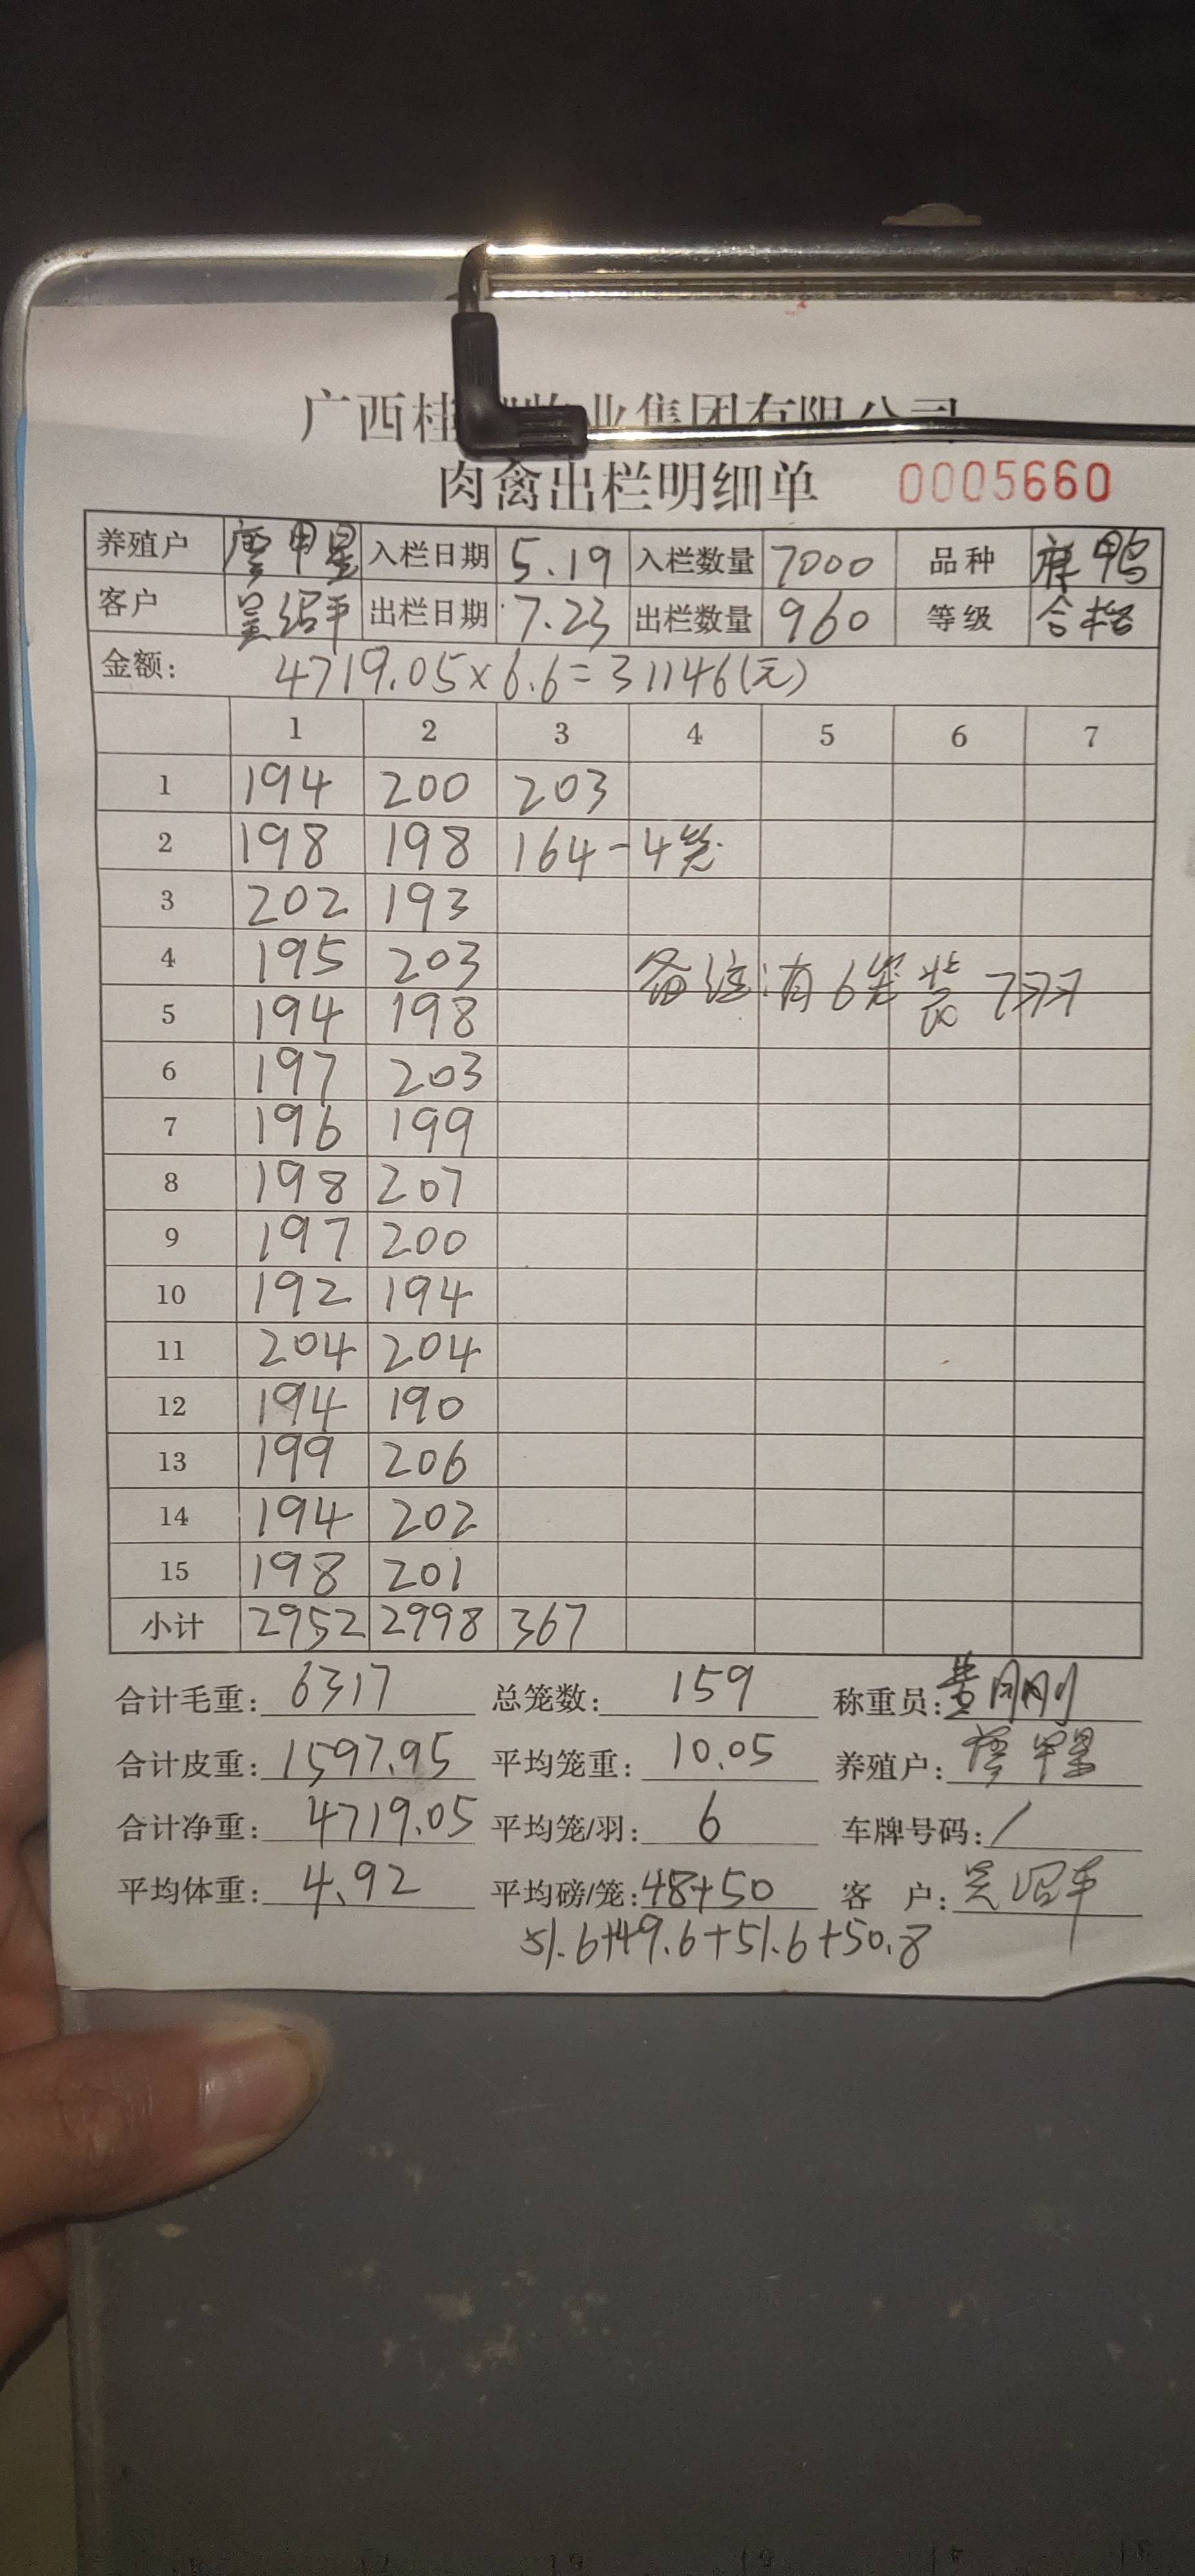 广西桂 牧业集团有限公司
肉禽出栏明细单 0005660
养殖户 唐甲星 入栏日期 5.19 入栏数量 7000 品种 麻鸭
客户 吴绍平 出栏日期 7.23 出栏数量 960 等级 合格
金额: 4719.05×6.6=31146(元)
1 2 3 4 5 6 7
1 194 200 203
2 198 198 164-4笼
3 202 193
4 195 203
备注:有6笼装7只
5 194 198
6 197 203
7 196 199
8 198 207
9 197 200
10 192 194
11 204 204
12 194 190
13 199 206
14 194 202
15 198 201
小计 2952 2998 367
合计毛重: 6317 总笼数: 159 称重员: 刚
合计皮重: 1597.95 平均笼重: 10.05 养殖户: 唐甲星
合计净重: 4719.05 平均笼/羽: 6 车牌号码: /
平均体重: 4.92 平均磅/笼: 48+50 客 户: 吴绍平
51.6+49.6+51.6+50.8